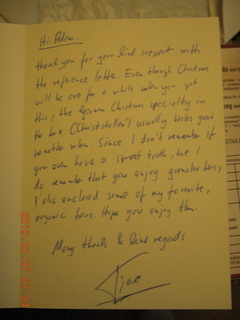 Hi Adam,
thank you for your kind support with
the reference letter. Even though Christmas
will be over for a while when you get
this, the German Christmas specialty in
the box (Christstollen) usually tastes good
no matter when. Since I don't remember if
you even have a sweet tooth, but I
do remember that you enjoy granola bars,
I also enclosed some of my favorite,
organic bars. Hope you enjoy them
Many thanks & kind regards